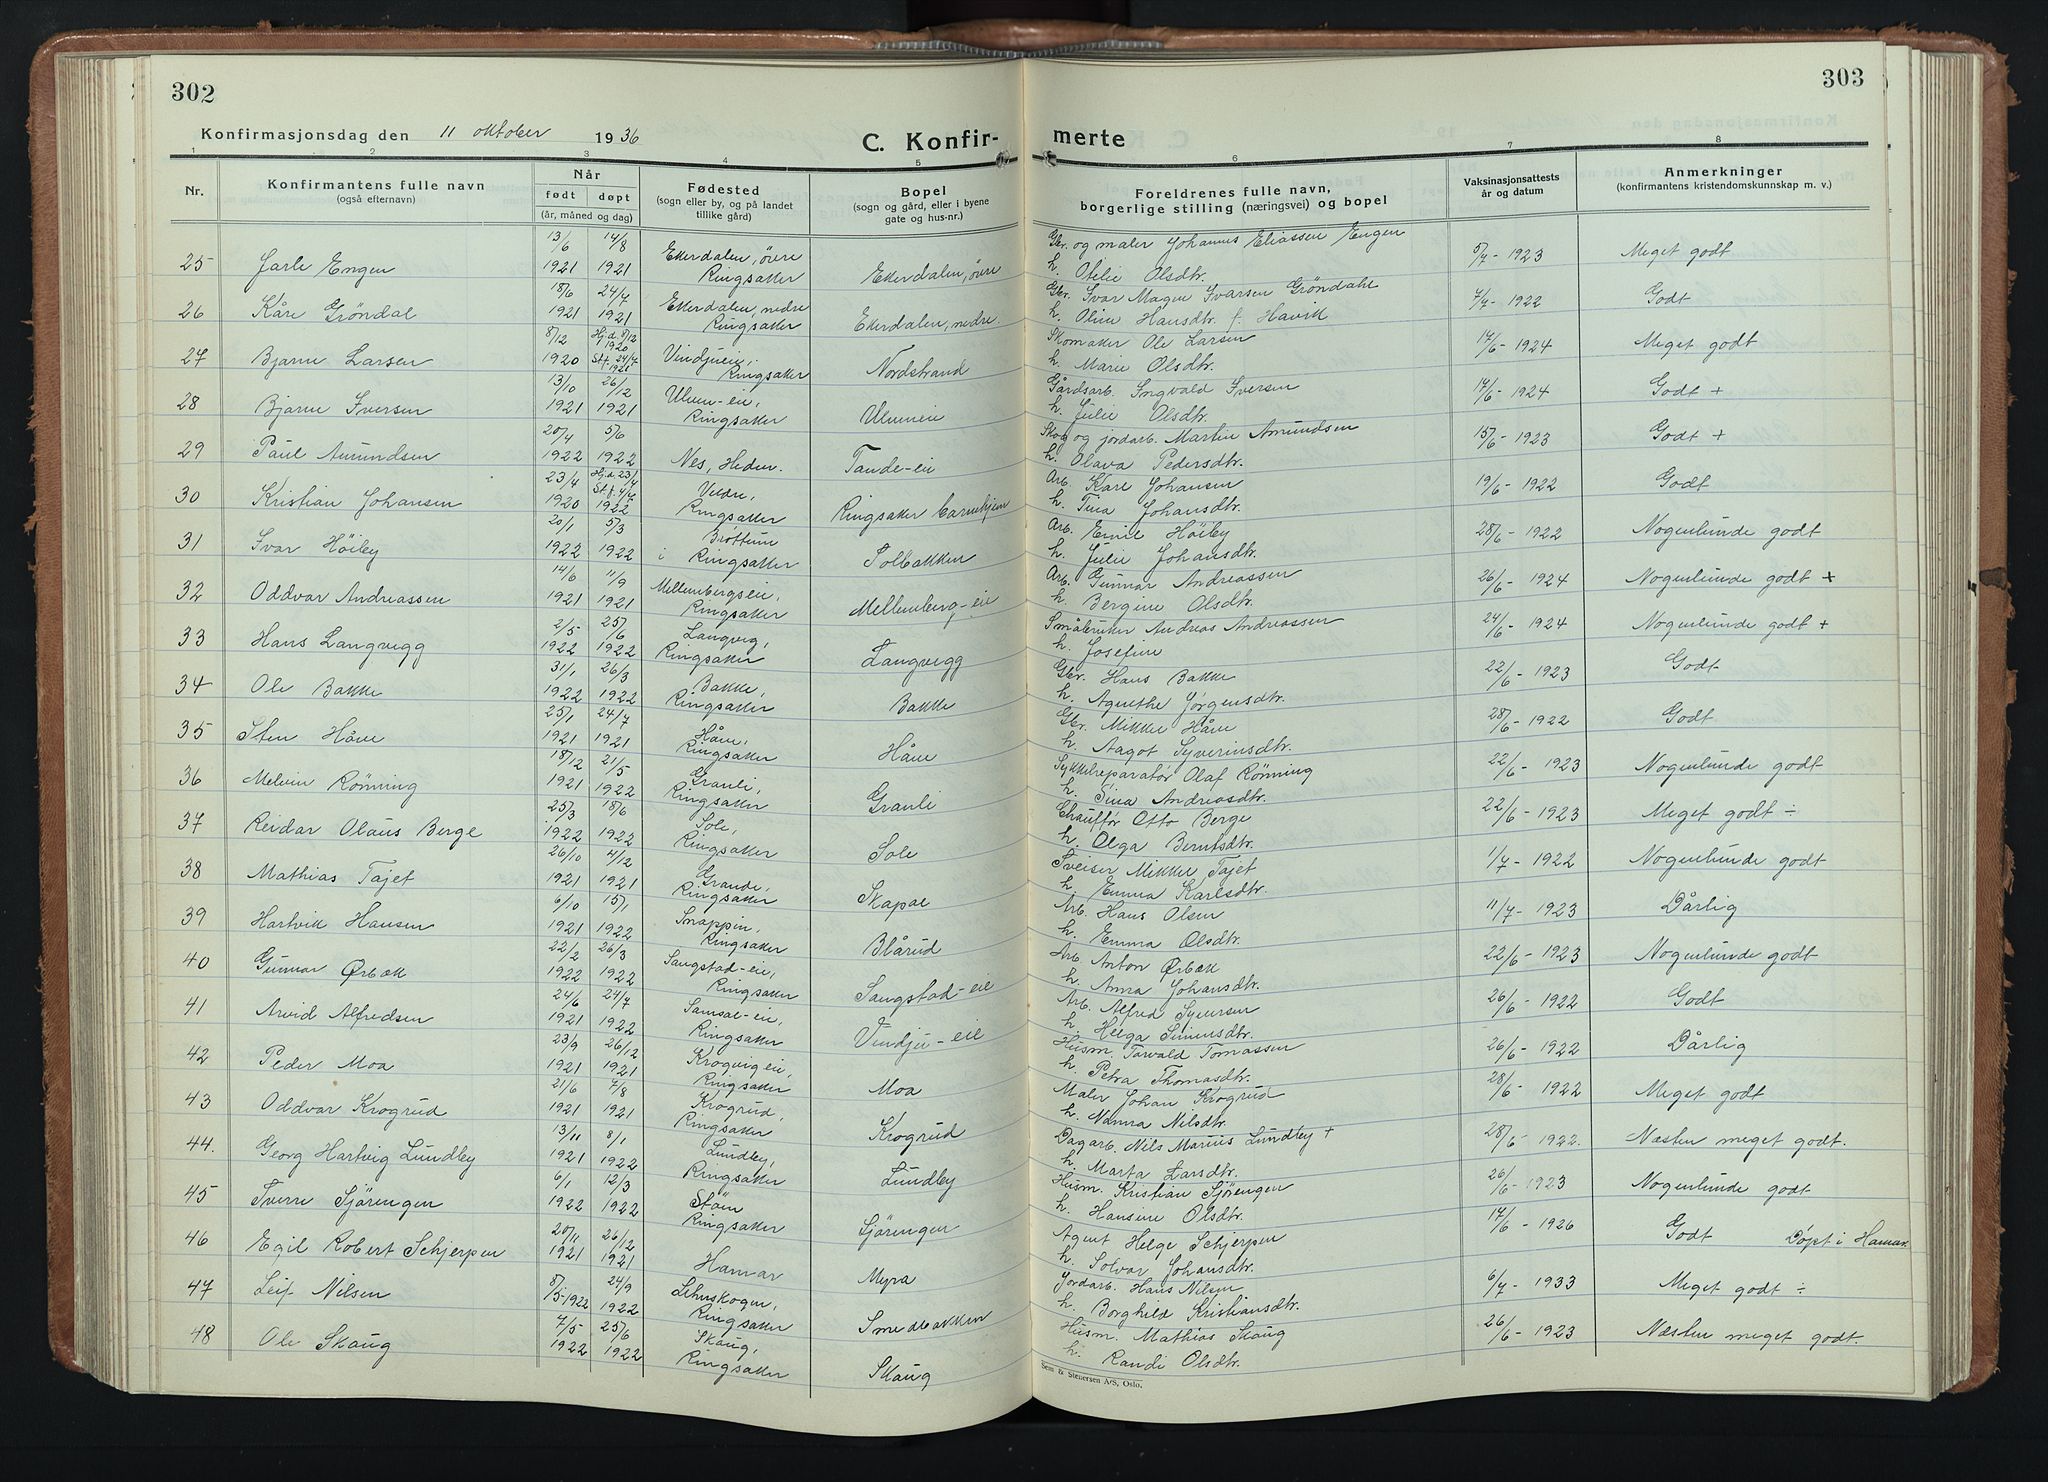 302
Konfirmasjonsdag den 11 oktober 1936
C. Konfir-
1 2 3 4 5
Nr.
Konfirmantens fulle navn
(også efternavn)
Når
født døpt
(år, måned og dag)
Fødested
(sogn eller by, og på landet
tillike gård)
Bopel
(sogn og gård, eller i byene
gate og hus-nr.)
13/6 14/8 Ekerdalen, øvre
25 Jarle Engen 1921 1921 Ringsaker Ekerdalen, øvre
18/6 24/7 Ekerdalen, nedre
26 Kåre Grøndal 1921 1921 Ringsaker Ekerdalen, nedre.
8/12 Hj.d. 8/12 1920
27 Bjarne Larsen 1920 St.f. 24/7 1921 Vindjueie, Ringsaker Nordstrand
13/10 26/12 Ulven-eie,
28 Bjarne Iversen 1921 1921 Ringsaker Ulveneie
20/4 5/6
29 Paul Amundsen 1922 1922 Nes, Hedm. Tande-eie
23/4 Hj.d. 23/4 Veldre,
30 Kristian Johansen 1920 St.f. 4/6 1922 Ringsaker Ringsaker barnehjem
20/1 5/3 Brøttum
31 Ivar Höiby 1922 1922 i Ringsaker Solbakken
14/6 11/9 Mellembergseie,
32 Oddvar Andreassen 1921 1921 Ringsaker Mellemberg-eie
2/5 25/6 Langvig,
33 Hans Langvegg 1922 1922 Ringsaker Langvegg
31/1 26/3 Bakke,
34 Ole Bakke 1922 1922 Ringsaker Bakke
25/1 24/7 Håve,
35 Sten Håve 1921 1921 Ringsaker Håve
18/12 21/5 Granli,
36 Melvin Rönning 1921 1922 Ringsaker Granli
25/3 18/6 Sole,
37 Reidar Olaus Berge 1922 1922 Ringsaker Sole
26/10 4/12 Grande,
38 Mathias Tajet 1921 1921 Ringsaker Skapal
6/10 15/1 Snappen,
39 Hartvik Hansen 1921 1922 Ringsaker Blårud
22/2 26/3 Sangstad-eie,
40 Gunnar Ørbæk 1922 1922 Ringsaker Sangstad-eie
24/6 24/7 Samsal-eie,
41 Arvid Alfredsen 1921 1922 Ringsaker Vindju-eie
23/9 26/12 Krogvigeie,
42 Peder Moa 1921 1921 Ringsaker Moa
21/6 7/8 Krogrud,
43 Oddvar Krogrud 1921 1921 Ringsaker Krogrud
13/11 8/1 Lundby,
44. Georg Hartvig Lundby 1921 1922 Ringsaker Lundby
6/1 12/3 Stöen
45 Sverre Sjörengen 1922 1922 Ringsaker Sjörengen
20/11 26/12
46 Egil Robert Schjerpen 1921 1921 Hamar Myra
8/5-1922 24/9 Lehnskogen,
47 Leif Nilsen 1922 Ringsaker Smedbakken
7/5 25/6 Skaug,
48 Ole Skaug 1922 1922 Ringsaker Skaug
303
merte
6 7 8
Foreldrenes fulle navn,
borgerlige stilling (næringsvei) og bopel
Vaksinasjonsattests
år og datum
Anmerkninger
(konfirmantens kristendomskunnskap m. v.)
Gbr. og maler Johannes Eliassen Engen
h. Otelie Olsdtr. 5/7-1923 Meget godt
Gbr. Ivar Magne Ivarsen Grøndahl
h. Oline Hansdtr. f. Havik 7/7-1922 Godt
Skomaker Ole Larsen
h. Marie Olsdtr. 17/6-1924 Meget godt
Gårdsarb. Ingvald Iversen
h. Julie Olsdtr. 17/6-1924 Godt +
Skog og jordarb. Martin Amundsen
h. Olava Pedersdtr. 15/6-1923 Godt +
Arb. Karl Johansen
h. Tina Johansdtr. 19/6-1922 Godt
Arb. Emil Höiby
h. Julie Johansdtr. 28/6-1922 Nogenlunde godt
Arb. Gunnar Andreassen
h. Bergine Olsdtr. 26/6-1924 Nogenlunde godt +
Småbruker Andreas Andreassen
h. Josefine 24/6-1924 Nogenlunde godt +
Gbr. Hans Bakke
h. Agnethe Jörgensdtr. 22/6-1923 Godt
Gbr. Mikkel Håve
h. Aagot Syverinsdtr. 28/6-1922 Godt
Sykkelreparatør Olaf Rönning
h. Sina Andreasdtr. 22/6-1923 Nogenlunde godt
Chauffør Otto Berge
h. Olga Berntsdtr. 22/6-1923 Meget godt ÷
Sveiser Mikkel Tajet
h. Emma Karlsdtr. 1/7-1922 Nogenlunde godt
Arb. Hans Olsen
h. Emma Olsdtr. 11/7-1923 Dårlig
Arb. Anton Ørbæk
h. Anna Johansdtr. 22/6-1923 Nogenlunde godt
Arb. Alfred Syversen
h. Helga Simensdtr. 26/6-1922 Godt
Husm. Torvald Tomassen
h. Petra Thomasdtr. 26/6-1922 Dårlig
Maler Johan Krogrud
h. Nanna Nilsdtr. 28/6-1922 Meget godt
Dagarb. Nils Marius Lundby +
h. Marta Larsdtr. 28/6-1922. Næsten meget godt.
Husm. Kristian Sjørengen
h. Hansine Olsdtr. 26/6-1923 Nogenlunde godt
Agent Helge Schjerpen
h. Solvar Johansdtr. 17/6-1926 Godt Døpt i Hamar.
Jordarb. Hans Nilsen
h. Borghild Kristiansdtr. 6/7-1933 Meget godt ÷
Husm. Mathias Skaug
h. Randi Olsdtr. 26/6-1923 Næsten meget godt.
Sem & Stenersen A/S, Oslo.